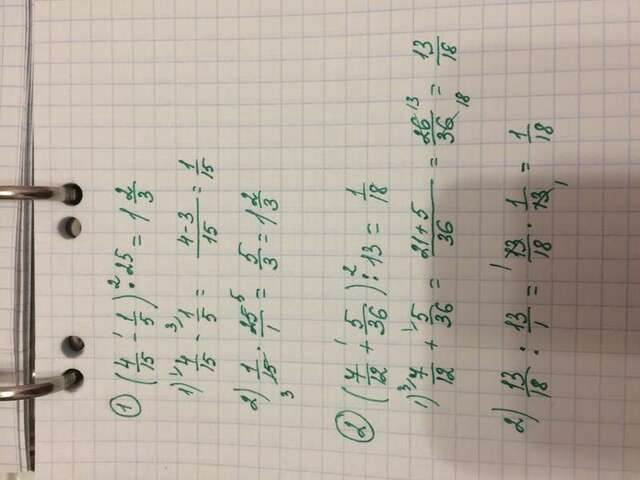 ① (4/15 - 1/5) ·² 25 = 1 2/3
1) ¹⁄4/15 - ³⁄1/5 = 4-3/15 = 1/15
2) 1/15 3 · 25 5/1 = 5/3 = 1 2/3
② (7/12 +¹ 5/36) :² 13 = 1/18
1) ³⁄7/12 + ¹⁄5/36 = 21+5/36 = 26 13/36 18 = 13/18
2) 13/18 : 13/1 = 13 1/18 · 1/13 1 = 1/18